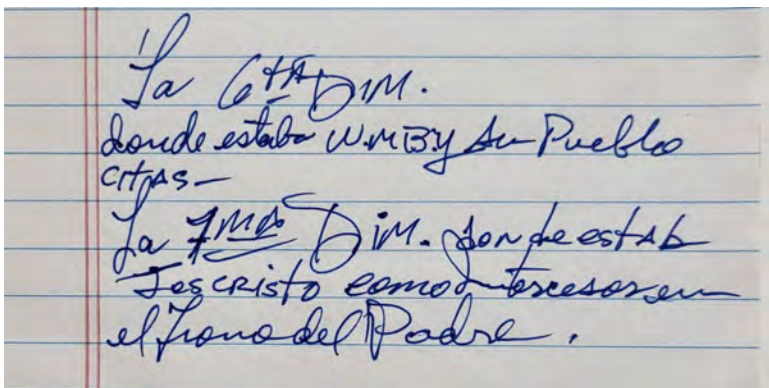 La 6tA Dim.
donde estaba W.M.B. y su Pueblo
CITAS-
La 7MA Dim. donde estab
Jescristo como Intercesor en
el Trono del Padre.